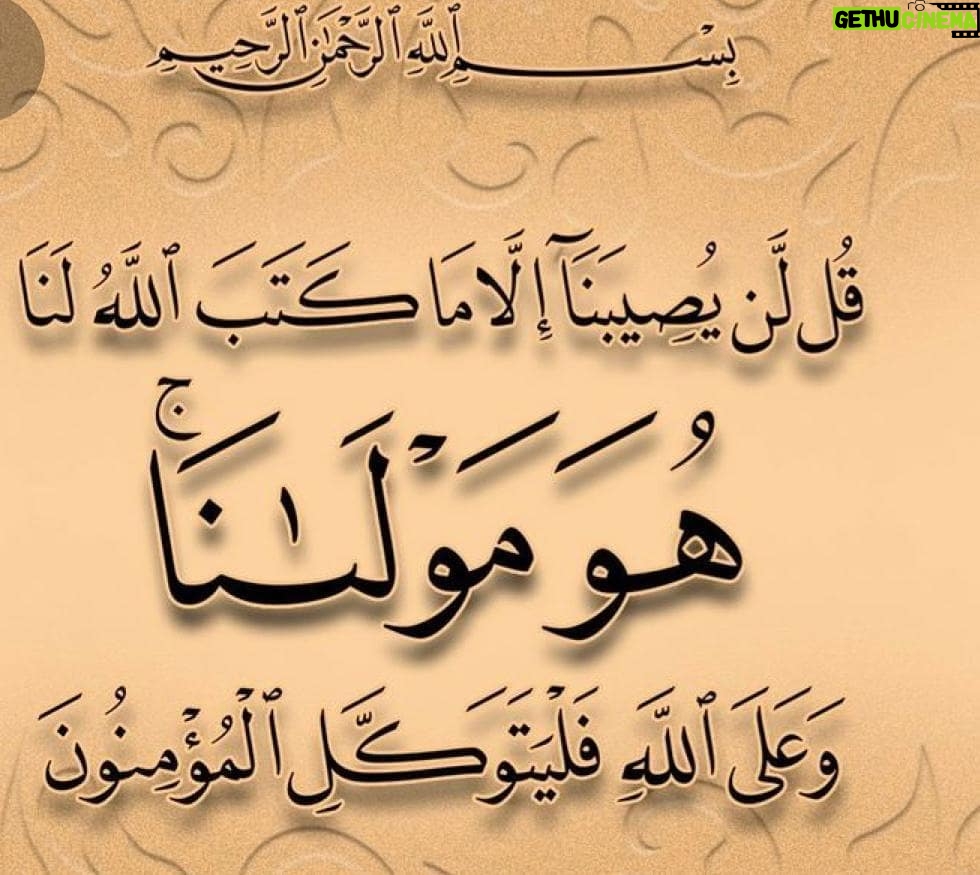 GETHU CINEMA
بِسْمِ ٱللَّهِ ٱلرَّحْمَٰنِ ٱلرَّحِيمِ
قُل لَّن يُصِيبَنَآ إِلَّا مَا كَتَبَ ٱللَّهُ لَنَا
هُوَ مَوْلَىٰنَا ۚ
وَعَلَى ٱللَّهِ فَلْيَتَوَكَّلِ ٱلْمُؤْمِنُونَ